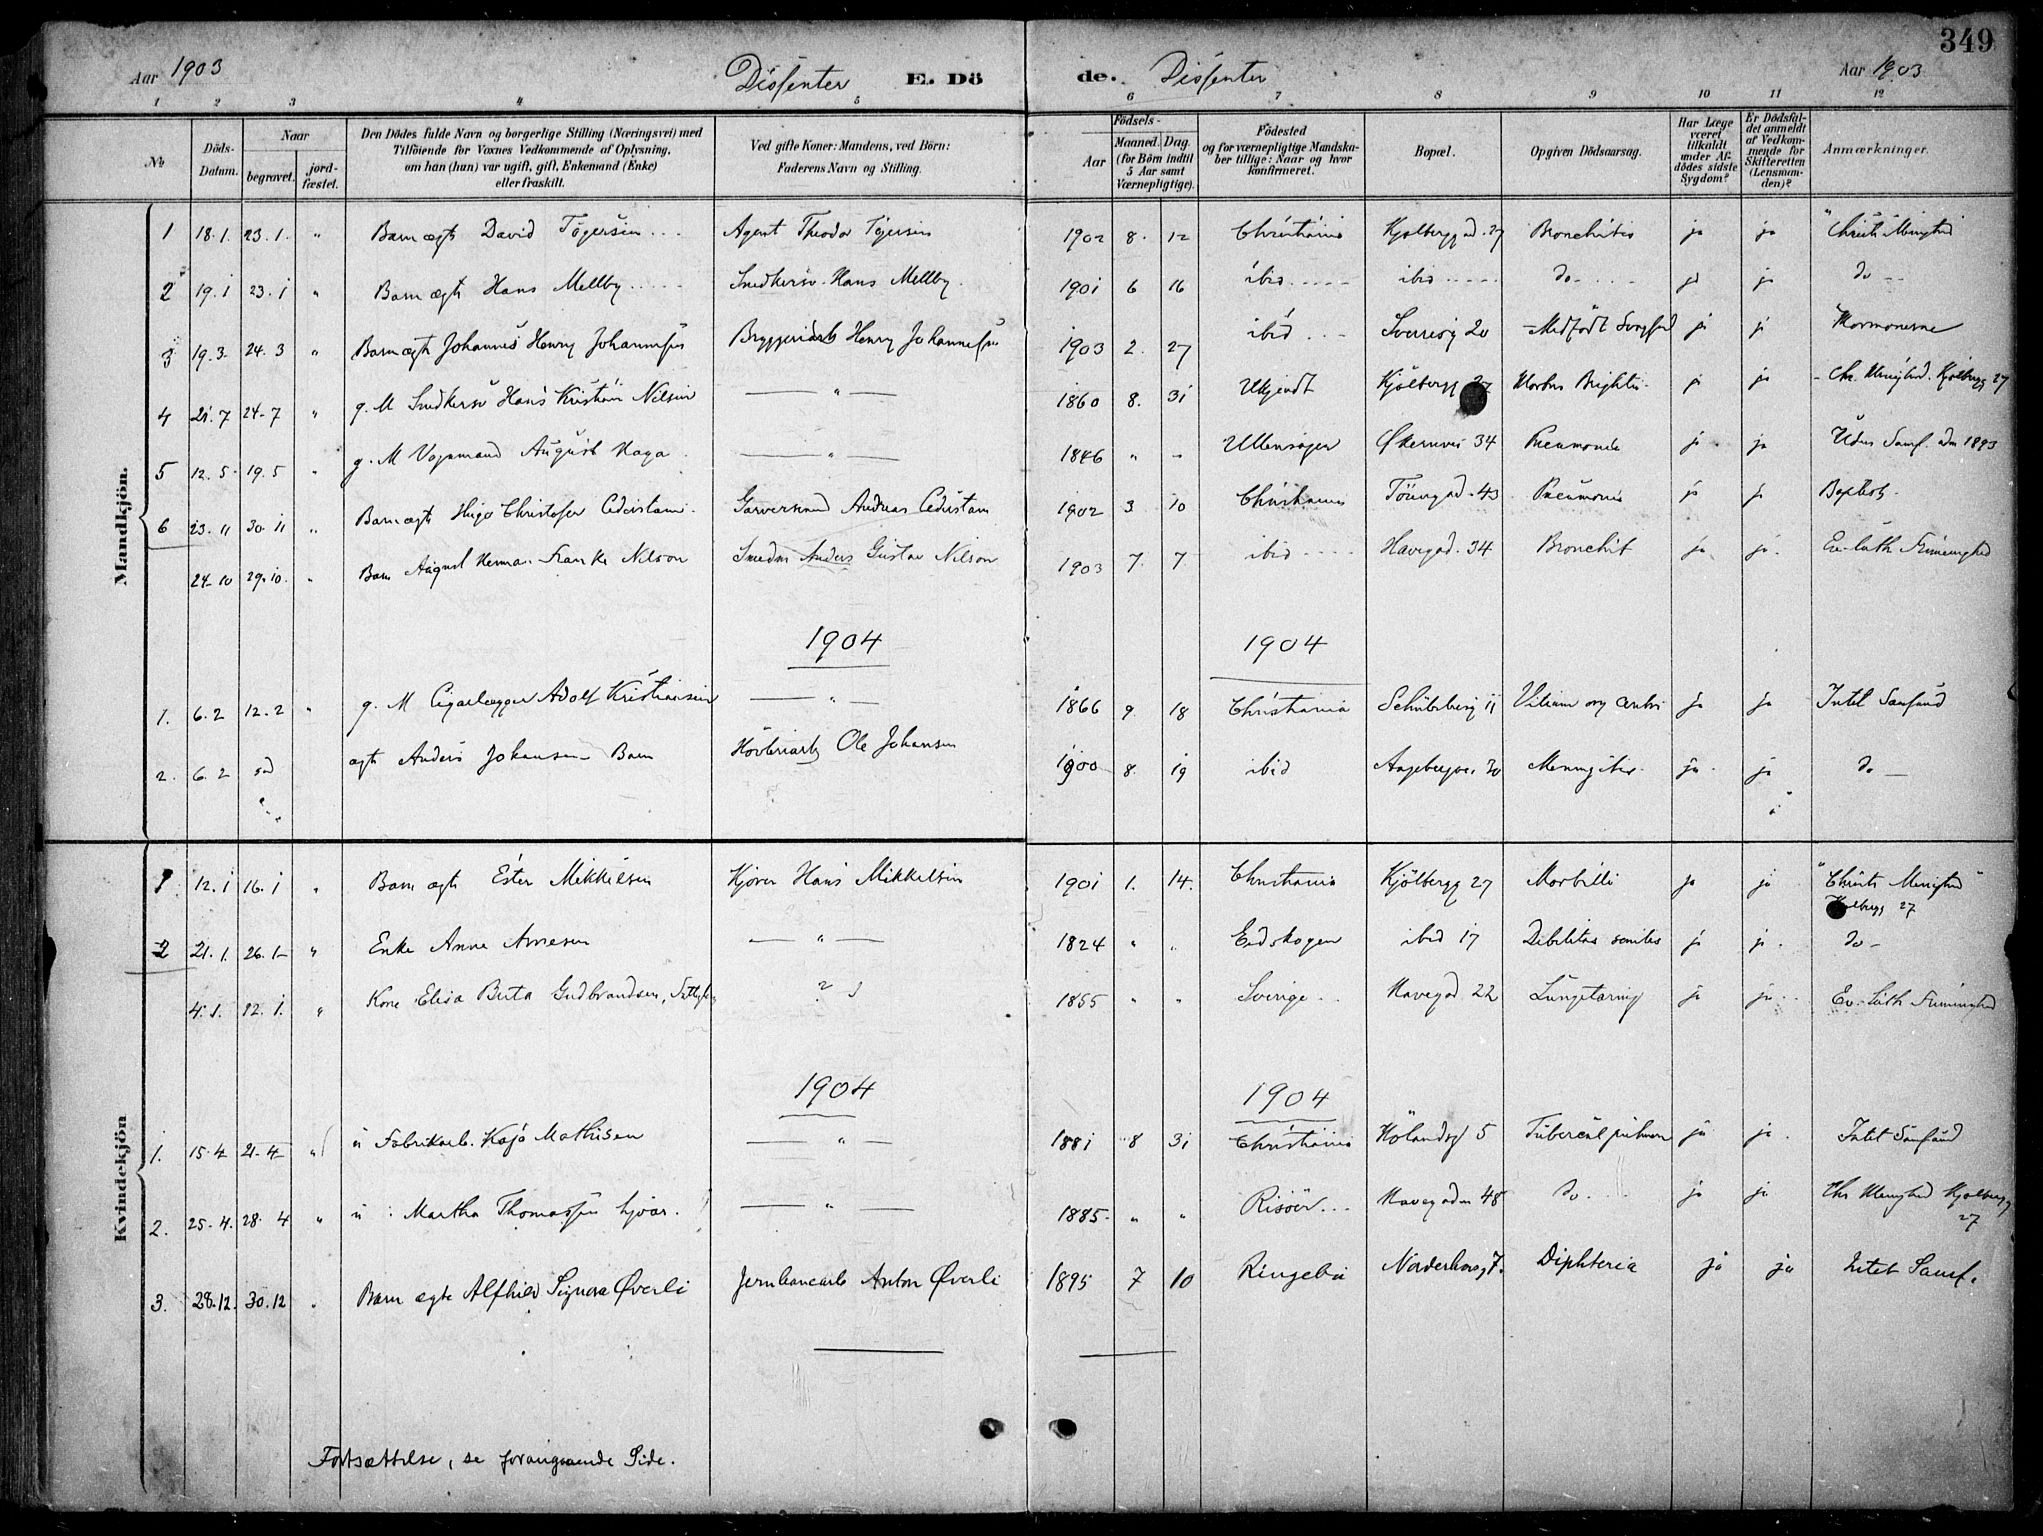 349
Aar 1903 Dissenter E. Dö de. Dissenter Aar 1903
1 2 3 4 5 6 7 8 9 10 11 12
No Döds-Datum. Naar begravet. jord-fæstet. Den Dödes fulde Navn og borgerlige Stilling (Næringsvei) med Tilföiende for Voxnes Vedkommende af Oplysning, om han (hun) var ugift, gift, Enkemand (Enke) eller fraskilt. Ved gifte Koner: Mandens, ved Börn: Faderens Navn og Stilling. Födsels- Aar Maaned. Dag. (for Börn indtil 5 Aar samt Værnepligtige). Födested og for værnepligtige Mandskaber tillige: Naar og hvor konfirmeret. Bopæl. Opgiven Dödsaarsag. Har Læge været tilkaldt under Afdödes sidste Sygdom? Er Dödsfaldet anmeldt af Vedkommende for Skifteretten (Lensmanden)? Anmærkninger.
Mandkjön.
1 18.1. 23.1. " Barn ægte David Tögersen Agent Theodor Tögersen 1902 8. 12 Christiania Kjølberggad. 27 Bronchites ja ja
2 19.1 23.1 " Barn ægte Hans Mellby Snedkersv. Hans Mellby. 1901 6 16 ibid ibid do ja ja do
3 19.3 24.3 " Barn ægte Johannes Henry Johannessen Bryggeriarb Henry Johannessen 1903 2. 27 ibid Sverresg 20 Medfödt ja ja Mormonerne
4 21.7 24.7 " g. M Snedkersv Hans Kristian Nilsen — " — 1860 8. 31 Ukjendt Kjölbergg 27 Morbus Brightii ja ja Chr. Menighed. Kjølbergg 27
5 12.5 19.5 " g. M Vognmand August Haga — " — 1846 " " Ullensager Økernvei 34 Pneumonia ja ja Uden Samf. 1893
6 23.11 30.11 " Barn ægte Hugo Christofer Garversvend Andreas 1902 3 10 Christiania Töiengad. 43 Pneumonie ja ja Baptist.
24.10 29.10. " Barn August Herman Nilson Smedm Anders Gustav Nilson 1903 7. 7 ibid Havegad. 34 Bronchit ja ja. Ev. luth Frimenighed
1904 1904
1. 6.2 12.2 " g. M Cigarlægger Adolf Kristiansen — " — 1866 9. 18 Christiania Schübelerg 11 Vitium org cordis ja ja Intet Samfund
2. 6.2 ægte Anders Johansen Barn Høvleriarb Ole Johansen 1900 8. 19 ibid Aagebergvei 30 Meningites ja ja do
Kvindekjön
1 12.1 16.1 " Barn ægte Ester Mikkelsen Kjører Hans Mikkelsen 1901 1. 14. Christiania Kjölbergg 27 Morbilli ja ja "Christi Menighed"
Kjølbergg 27
2 21.1. 26.1 " Enke Anne Arnesen — " — 1824 " " Eidskogen ibid 17 Debilitas senilis ja ja. do
4.1. 12.1. " Kone Elisa Berta Gudbrandsen, ? 1855 " " Sverige Havegad 22 Lungetæring ja ja Ev. Luth Frimenighed
1904 1904
1. 15.4 21.4 " u Fabrikarb. Kaja Mathisen — " — 1881 8 31 Christiania Hölandsg 5 Tubercul pulmon ja ja. Intet Samfund
2. 25.4. 28.4 " u Martha Thomassen — " — 1885 " " Risöer Havegaden 48 do ja ja Chr Menighed Kjølbergg
27
3. 28.12. 30.12 " Barn ægte Alfhild Signora Øverli Jernbanearb Anton Øverli 1895 7 10 Ringebu Norderhovsg 7. Diphteria ja ja Intet Samf.
Fortsættelse, se foregaaende Side.